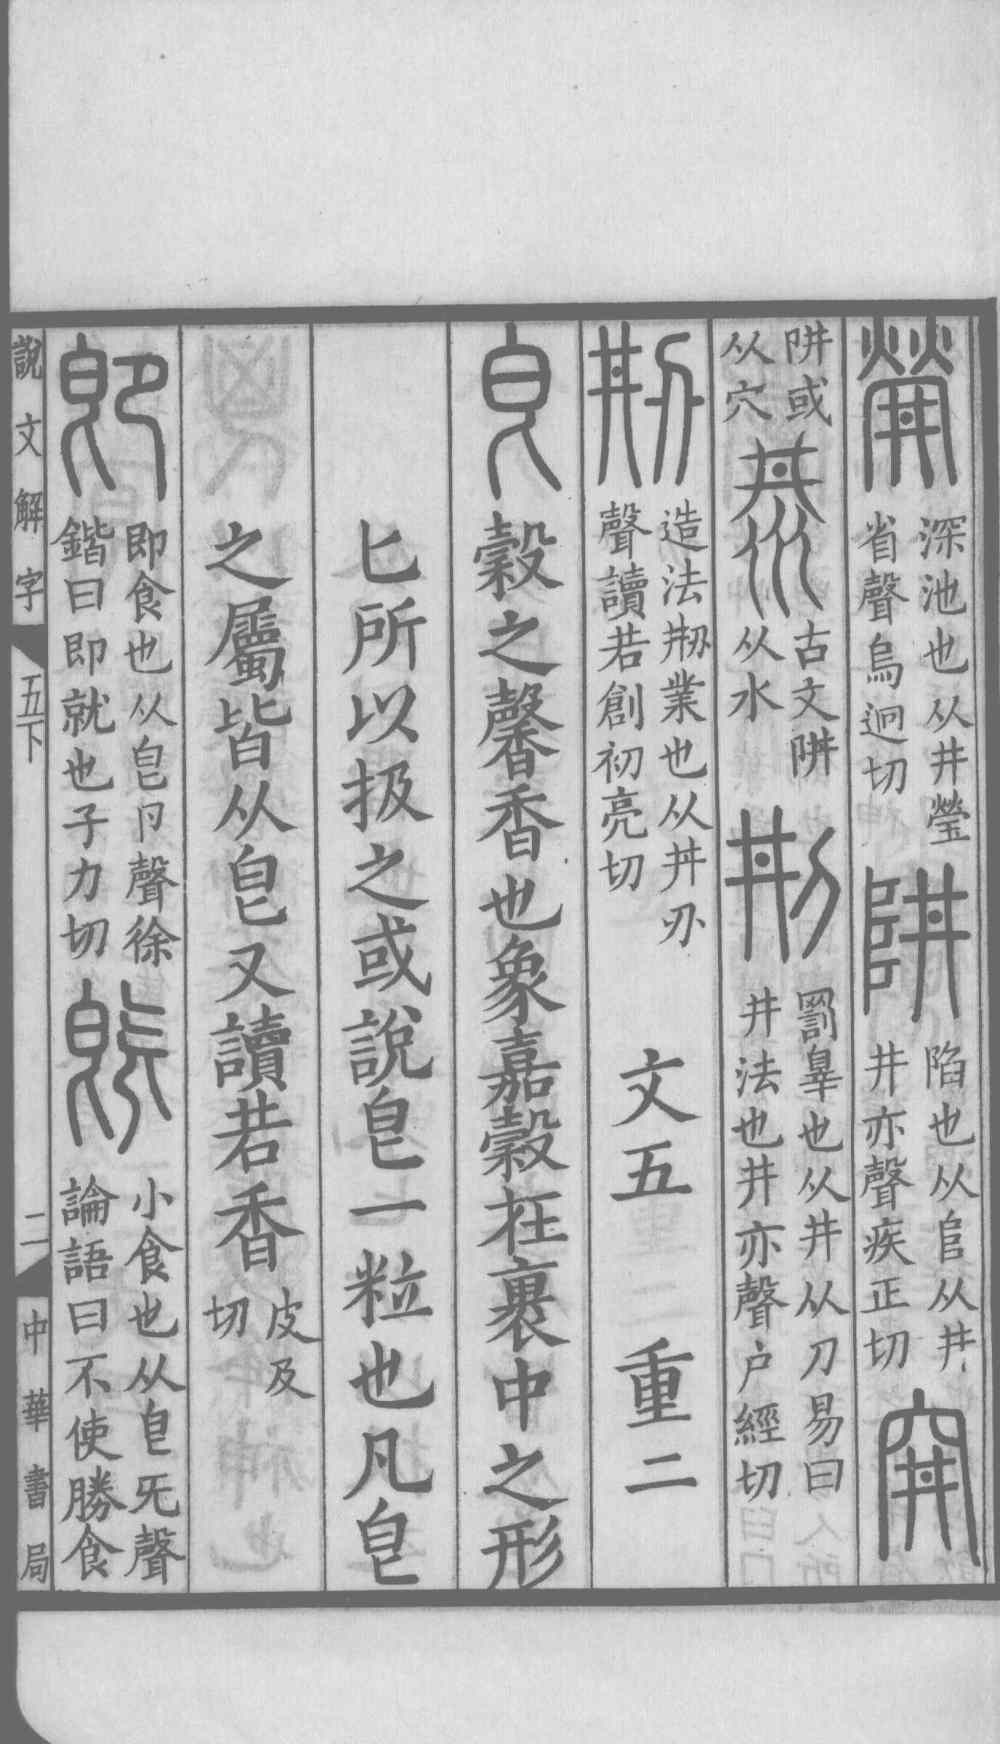 𦿰深池也从井瑩省聲烏迥切阱陷也从𨸏从井井亦聲疾正切穽
阱或从穴汬古文阱从水𠛬罰辠也从井从刀易曰井法也井亦聲户經切
刱造法刱業也从井刅聲讀若創初亮切 文五 重二
皀穀之馨香也象嘉穀在裹中之形
匕所以扱之或說皀一粒也凡皀
之屬皆从皀又讀若香皮及切
即即食也从皀卪聲徐鍇曰即就也子力切既小食也从皀旡聲論語曰不使勝食
說文解字 五下 二 中華書局